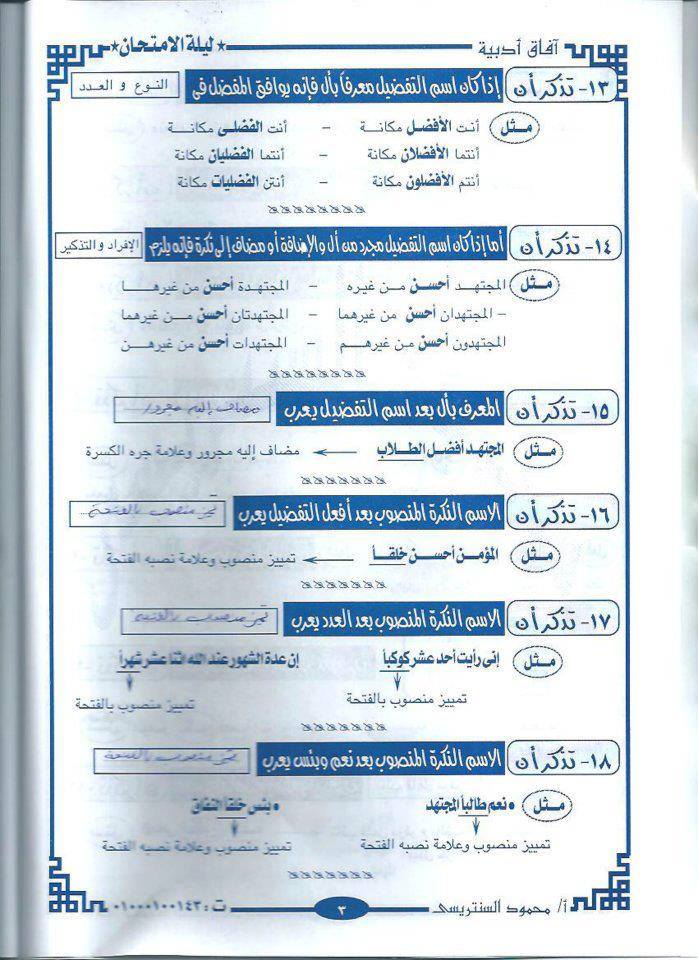 آفاق أدبية
*ليلة الامتحان*
١٣- تذكر أن إذا كان اسم التفضيل معرفاً بأل فإنه يوافق المفضل فى النوع و العدد
مثل أنت الأفضل مكانة – أنت الفضلى مكانة
أنتما الأفضلان مكانة – أنتما الفضليان مكانة
أنتم الأفضلون مكانة – أنتن الفضليات مكانة
١٤- تذكر أن أما إذا كان اسم التفضيل مجرد من أل والإضافة أو مضاف إلى نكرة فإنه يلزم الإفراد والتذكير
مثل المجتهد أحسن من غيره – المجتهدة أحسن من غيرها
– المجتهدان أحسن من غيرهما – المجتهدتان أحسن من غيرهما
المجتهدون أحسن من غيرهم – المجتهدات أحسن من غيرهن
١٥- تذكر أن المعرف بأل بعد اسم التفضيل يعرب مضاف إليه مجرور
مثل المجتهد أفضل الطلاب ← مضاف إليه مجرور وعلامة جره الكسرة
١٦- تذكر أن الاسم النكرة المنصوب بعد أفعل التفضيل يعرب تمييز منصوب بالفتحة
مثل المؤمن أحسن خلقاً ← تمييز منصوب وعلامة نصبه الفتحة
١٧- تذكر أن الاسم النكرة المنصوب بعد العدد يعرب تمييز منصوب بالفتحة
مثل إنى رأيت أحد عشر كوكباً إن عدة الشهور عند الله اثنا عشر شهراً
تمييز منصوب بالفتحة تمييز منصوب بالفتحة
١٨- تذكر أن الاسم النكرة المنصوب بعد نعم وبئس يعرب تمييز منصوب بالفتحة
مثل • نعم طالباً المجتهد • بئس خلقاً النفاق
تمييز منصوب وعلامة نصبه الفتحة تمييز منصوب وعلامة نصبه الفتحة
أ/ محمود السنتريسى ٣ ت : ٠١٠٠٠١٠٠١٤٣